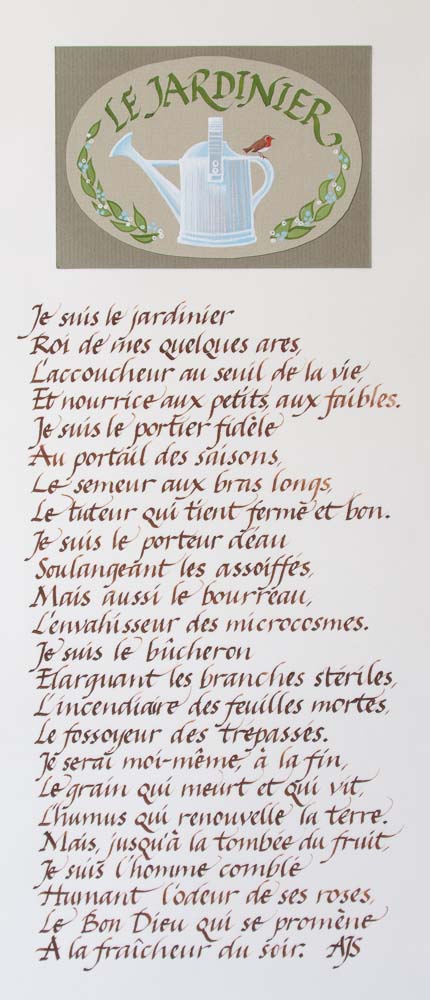 LE JARDINIER
Je suis le jardinier
Roi de mes quelques ares,
L'accoucheur au seuil de la vie,
Et nourrice aux petits, aux faibles.
Je suis le portier fidèle
Au portail des saisons,
Le semeur aux bras longs,
Le tuteur qui tient ferme et bon.
Je suis le porteur d'eau
Soulangeant les assoiffés,
Mais aussi le bourreau,
L'envahisseur des microcosmes.
Je suis le bûcheron
Elarguant les branches stériles,
L'incendiaire des feuilles mortes,
Le fossoyeur des trépassés.
Je serai moi-même, à la fin,
Le grain qui meurt et qui vit,
L'humus qui renouvelle la terre.
Mais, jusqu'à la tombée du fruit,
Je suis l'homme comblé
Humant l'odeur de ses roses,
Le Bon Dieu qui se promène
A la fraîcheur du soir. AJS